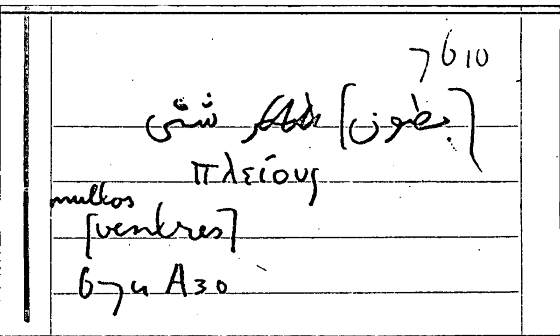 7610
[بطون] شتى
πλείους
multos
[ventres]
677a A30